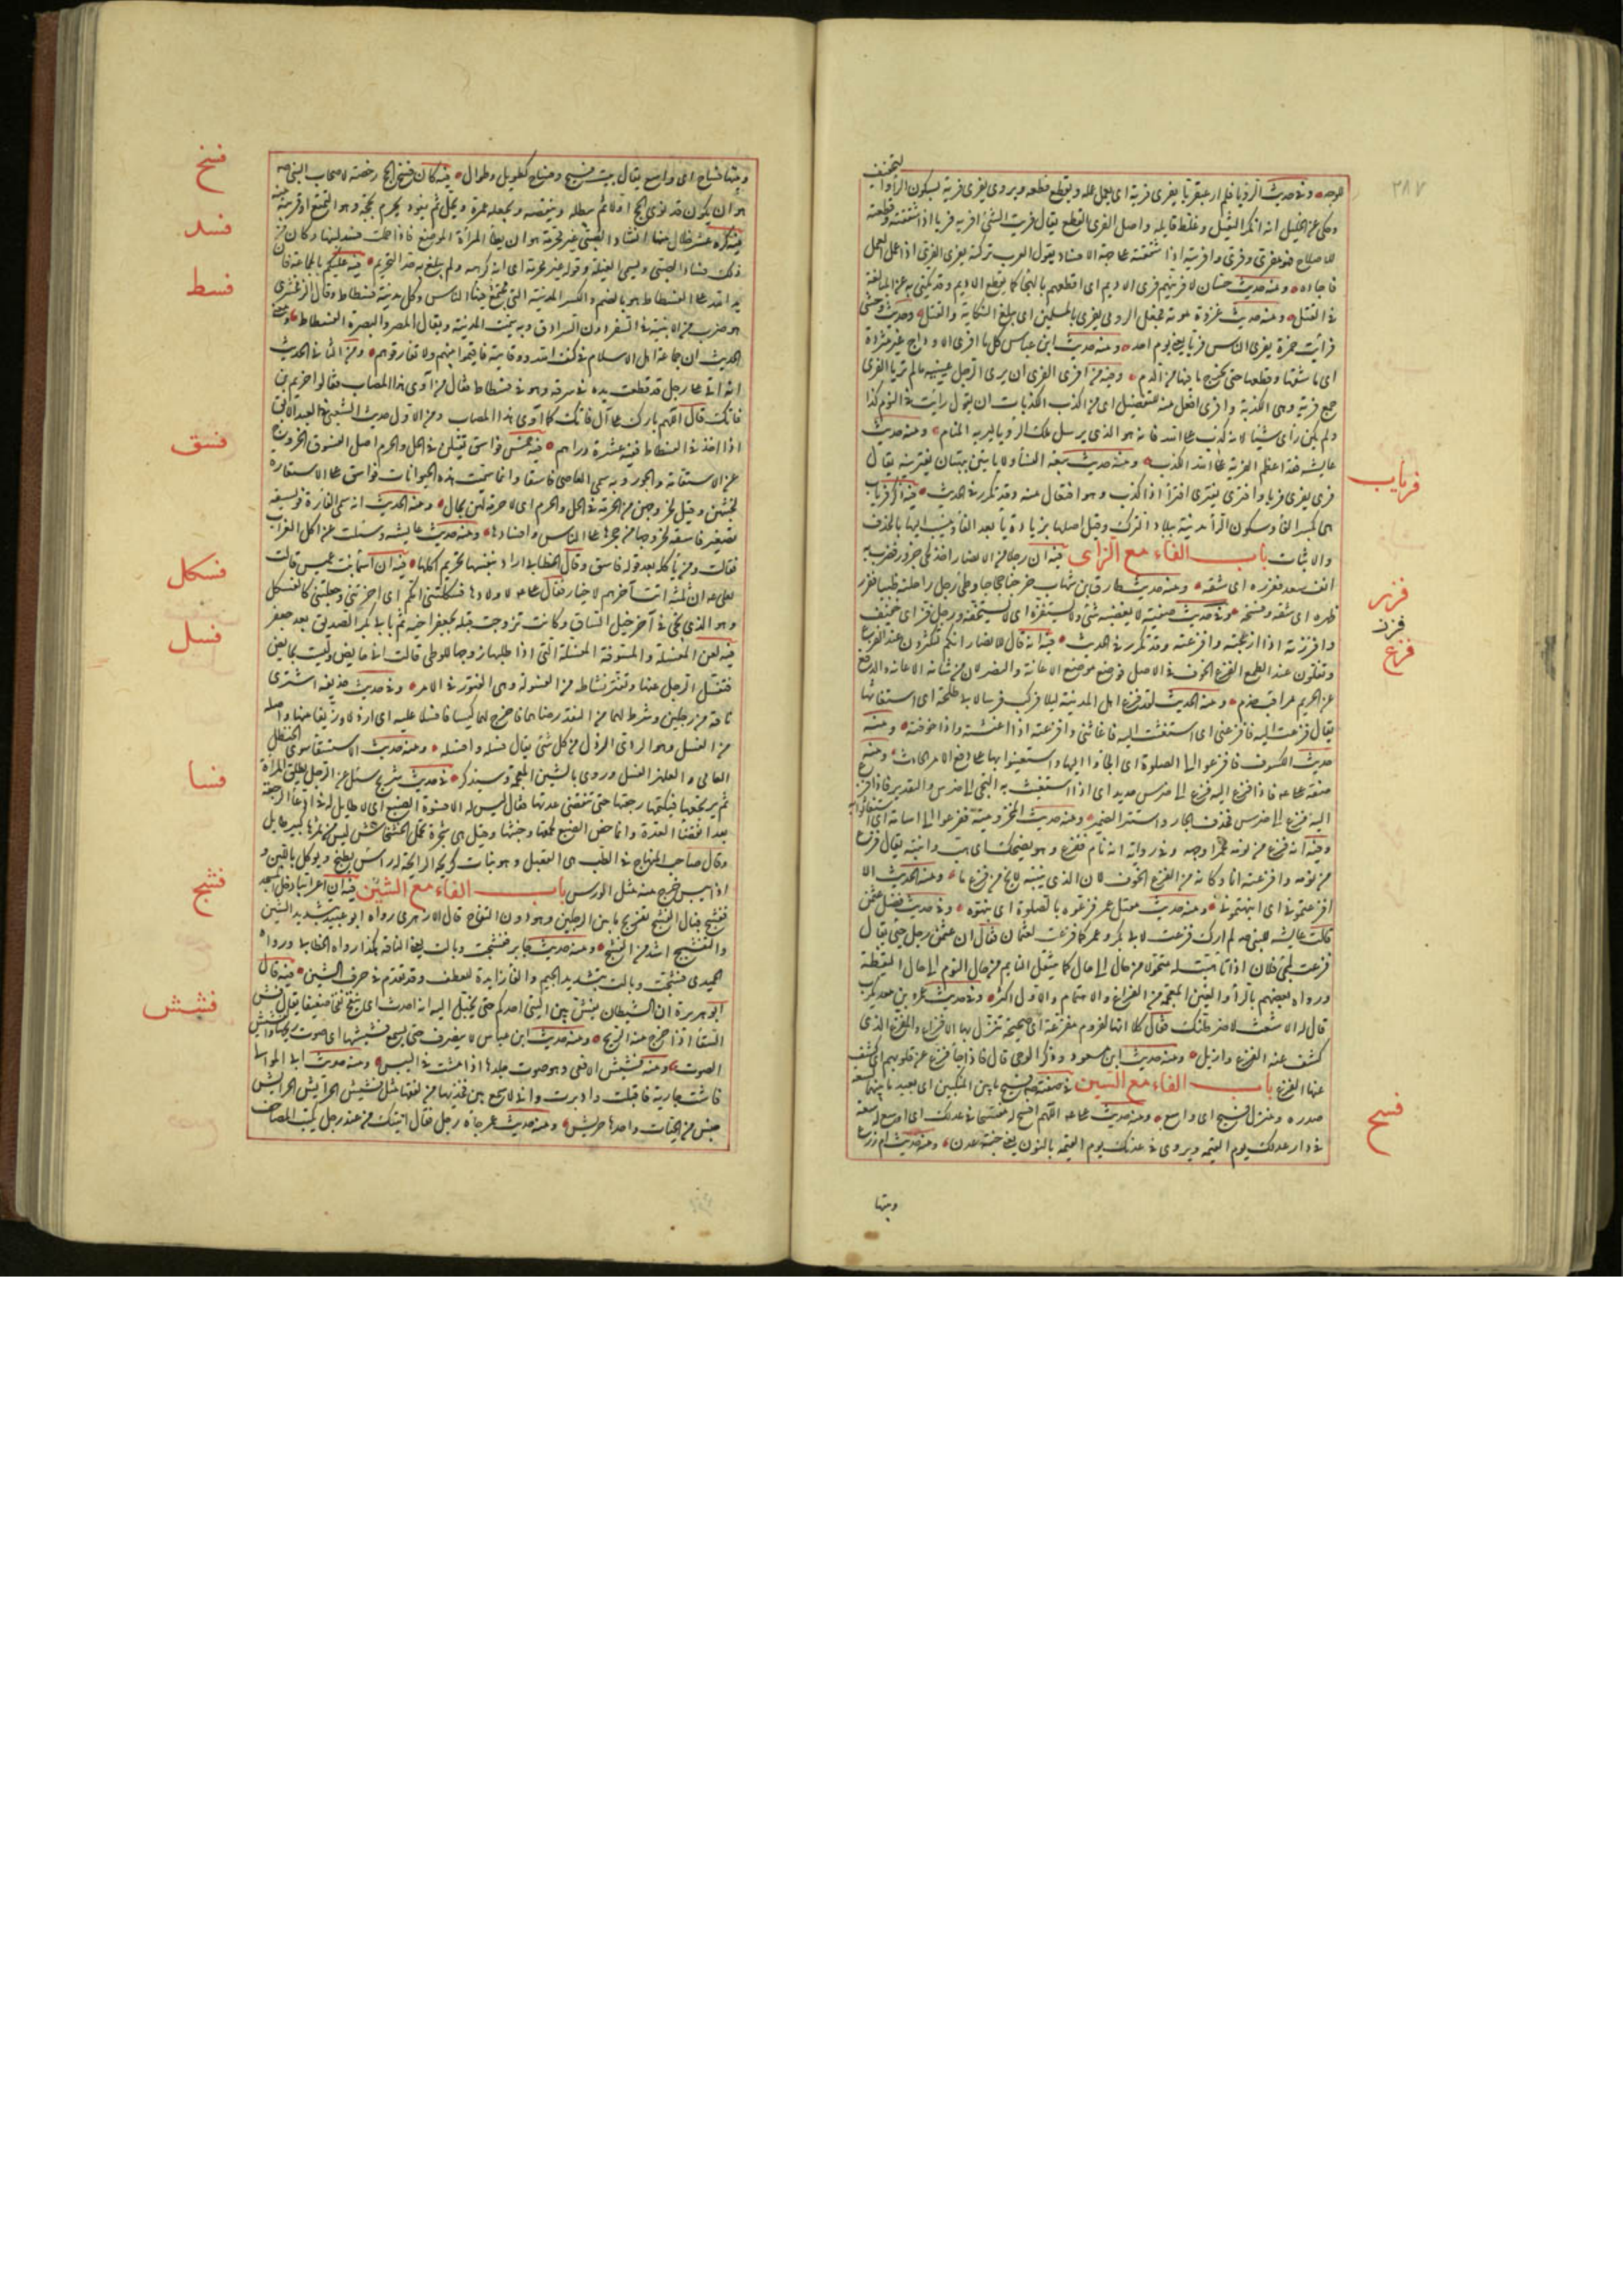 ٢٨٧
للتخفيف
وحكى عن الخليل انه انكر التثقيل وغلط قايله واصل الفرى القطع يقال فريت الشئ افريه فريا اذا شققته وقطعته
فاجاده ومنه حديث حسان لافرينهم فرى الاديم اى اقطعهم بالهجا كما يقطع الاديم وقد يكنى به عن المبالغة
فى القتل ومنه حديث غزوة موته فجعل الرومى يفرى بالمسلمين اى يبالغ النكاية والقتل وحديث وحشى
فرايت حمزة يفرى الناس فريا يعنى يوم احد ومنه حديث ابن عباس كل ما افرى الاوداج غير مثرد
اى ما شقها وقطعها حتى يخرج ما فيها من الدم وفيه من افرى الفرى ان يرى الرجل عينيه ما لم تريا الفرى
جمع فرية وهى الكذبة وافرى افعل منه للتفضيل اى من اكذب الكذبات ان يقول رايت فى النوم كذا
ولم يكن راى شيئا لانه كذب على الله فانه هو الذى يرسل ملك الرويا ليريه المنام ومنه حديث
عايشه فقد اعظم الفرية على الله اى الكذب ومنه حديث بيعة النسا ولا ياتين ببهتان يفترينه يقال
فرى يفرى فريا وافترى يفترى افترا اذا كذب وهو افتعال منه وقد تكرر فى الحديث فيه ذكر فرياب
هى بكسر الفا وسكون الرا مدينة ببلاد الترك وقيل اصلها بزيادة يا بعد الفا وينسب اليها بالحذف
والاثبات باب الفاء مع الزاى فيه ان رجلا من الانصار اخذ لحى جزور فضرب به
انف سعد ففزره اى شقه ومنه حديث طارق بن شهاب خرجنا حجاجا فوطئ رجل راحلته ظبيا ففزر
ظهره اى شقه وفسخه فى حديث صفية لا يغضبه شئ ولا يستفزه اى لا يستخفه ورجل فز اى خفيف
وافززته اذا ازعجته وافزعته وقد تكرر فى الحديث فيه انه قال للانصار انكم لتكثرون عند الفزع
وتقلون عند الطمع الفزع الخوف فى الاصل فوضع موضع الاغاثة والنصر لان من شانه الاغاثة والدفع
عن الحريم مراقب حذر ومنه الحديث لقد فزع اهل المدينة ليلا فركب فرسا لابى طلحة اى استغاثوا
يقال فزعت اليه فافزعنى اى استغثت اليه فاغاثنى وافزعته اذا اغثته واذا خوفته ومنه
حديث الكسوف فافزعوا الى الصلوة اى الجاوا اليها واستعينوا بها على دفع الامر الحادث ومنه
وفيه انه فزع من نومه محمرا وجهه وفى رواية انه نام ففزع وهو يضحك اى هب وانتبه يقال فزع
من نومه وافزعته انا وكانه من الفزع الخوف لان الذى ينتبه لا يخلو من فزع ما ومنه الحديث الا
افزعتمونى اى انبهتمونى ومنه حديث مقتل عمر فزعوه بالصلوة اى نبهوه وفى حديث فضل عثمن
قالت عايشه للنبى ص لم ارك فزعت لابى بكر وعمر كما فزعت لعثمان فقال ان عثمن رجل حيى يقال
فزعت لمجئ فلان اذا تاهبت له متحولا من حال الى حال كما ينتقل النايم من حال النوم الى حال اليقظة
ورواه بعضهم بالرا والغين المعجمه من الفراغ والاهتمام والاول اكثر وفى حديث عمرو بن معديكرب
قال له الاشعث لاضرطنك فقال كلا انها لعزوم مفزعة اى صحيحة تنزل بها الافزاع والمفزع الذى
كشف عنه الفزع وازيل ومنه حديث ابن مسعود وذكر الوحى قال فاذا جا فزع عن قلوبهم اى كشف
عنها الفزع باب الفاء مع السين فى صفته ص فسيح ما بين المنكبين اى بعيد ما بينهما لسعة
صدره ومنزل فسيح اى واسع ومنه حديث على اللهم افسح له مفتسحا فى عدلك اى اوسع له سعة
فى دار عدلك يوم القيمه ويروى فى عدنك يوم القيمه بالنون يعنى جنة عدن ومنه حديث ام زرع
وبيتها
فرياب
فزر
فزز
فزع
فسح
وبيتها فساح اى واسع يقال بيت فسيح وفساح كطويل وطوال فيه كان فسخ الحج رخصة لاصحاب النبى ص
هو ان يكون قد نوى الحج اولا ثم يبطله وينقضه ويجعله عمرة ويحل ثم يعود يحرم بحجة وهو التمتع او قريب منه
فيه كره عشر خلال منها افساد الصبى غير محرمه هو ان يطا المراة المرضع فاذا حملت فسد لبنها وكان من
ذلك فساد الصبى وتسمى الغيلة وقوله غير محرمه اى انه كرهه ولم يبلغ به حد التحريم فيه عليكم بالجماعة فان
يد الله على الفسطاط هو بالضم والكسر المدينة التى فيها مجتمع الناس وكل مدينة فسطاط وقال الزمخشرى
هو ضرب من الابنية فى السفر دون السرادق وبه سميت المدينة ويقال لمصر والبصرة الفسطاط ومعنى
الحديث ان جماعة اهل الاسلام فى كنف الله ووقايته فاقيموا بينهم ولا تفارقوهم ومن الثانى الحديث
انه اتى على رجل قد قطعت يده فى سرقه وهو فى فسطاط فقال من آوى هذا المصاب فقالوا خزيم بن
فاتك قال اللهم بارك على آل فاتك كما آوى هذا المصاب ومن الاول حديث الشعبى فى العبد الابق
اذا اخذ فى الفسطاط ففيه عشرة دراهم فيه خمس فواسق يقتلن فى الحل والحرم اصل الفسوق الخروج
عن الاستقامة والجور وبه سمى العاصى فاسقا وانما سميت هذه الحيوانات فواسق على الاستعارة
لخبثهن وقيل لخروجهن من الحرمة فى الحل والحرم اى لا حرمة لهن بحال ومنه الحديث انه سمى الفارة فويسقة
تصغير فاسقه لخروجها من جحرها على الناس وافسادها ومنه حديث عايشه وسئلت عن اكل الغراب
فقالت ومن ياكله بعد قوله فاسق وقال الخطابى اراد بتفسيقها تحريم اكلها فيه ان اسما بنت عميس قالت
لعلى ان ثلثه انت آخرهم لاخيار فقال على لاولادها فسكلتنى امكم اى اخرتنى وجعلتنى كالفسكل
وهو الذى يجئ فى آخر خيل السباق وكانت تزوجت قبله بجعفر اخيه ثم بابى بكر الصديق بعد جعفر
فيه لعن المفسلة والمسوفة المفسلة التى اذا طلبها زوجها للوطئ قالت انى حايض وليست بحايض
فتفسل الرجل عنها وتفتر نشاطه من الفسولة وهى الفتور فى الامر وفى حديث حذيفه اشترى
ناقة من رجلين وشرط لهما من النقد رضاهما فاخرج لهما كيسا فافسلا عليه اى ارذلا وزيفا منها واصله
من الفسل وهو الردئ الرذل من كل شئ يقال فسله وافسله ومنه حديث الاستسقا سوى الحنظل
العامى والعلهز الفسل وروى بالشين المعجمة وسيذكر فى حديث شريح سئل عن الرجل يطلق المراة
ثم يرتجعها فيكتمها رجعتها حتى تنقضى عدتها فقال ليس له الا فسوة الضبع اى لا طايل له فى ادعا الرجعة
بعد انقضا العدة وانما خص الضبع لحمقها وخبثها وقيل هى شجرة تحمل الخشخاش ليس فى ثمرها كبير طايل
وقال صاحب المنهاج فى الطب هى القعبل وهو نبات كريه الرايحة له راس يطبخ ويوكل باللبن و
اذا يبس خرج منه مثل الورس باب الفاء مع الشين فيه ان اعرابيا دخل المسجد
ففشج فبال الفشج تفريج ما بين الرجلين وهو دون التفاج قال الازهرى رواه ابو عبيد بتشديد الشين
والتفشيج اشد من الفشج ومنه حديث جابر ففشجت وبالت يعنى الناقة هكذا رواه الخطابى ورواه
الحميدى فشجت وبالت بتشديد الجيم والفا زايدة للعطف وقد تقدم فى حرف الشين فيه قال
ابو هريرة ان الشيطان يفش بين اليتى احدكم حتى يخيل اليه انه احدث اى ينفخ نفخا ضعيفا يقال فش
السقا اذا خرج منه الريح ومنه حديث ابن عباس لا ينصرف حتى يسمع فشيشها اى صوت ريحها والفش
الصوت ومنه فشيش الافعى وهو صوت جلدها اذا مشت فى اليبس ومنه حديث ابى الموالى
فاتت جارية فاقبلت وادبرت وانى لاسمع بين فخذيها من لففها مثل فشيش الحرابش الحرابش
جنس من الحيات واحدها حربش ومنه حديث عمر جاه رجل فقال اتيتك من عند رجل يكتب المصاحف
فسخ
فسد
فسط
فسق
فسكل
فسل
فسا
فشج
فشش